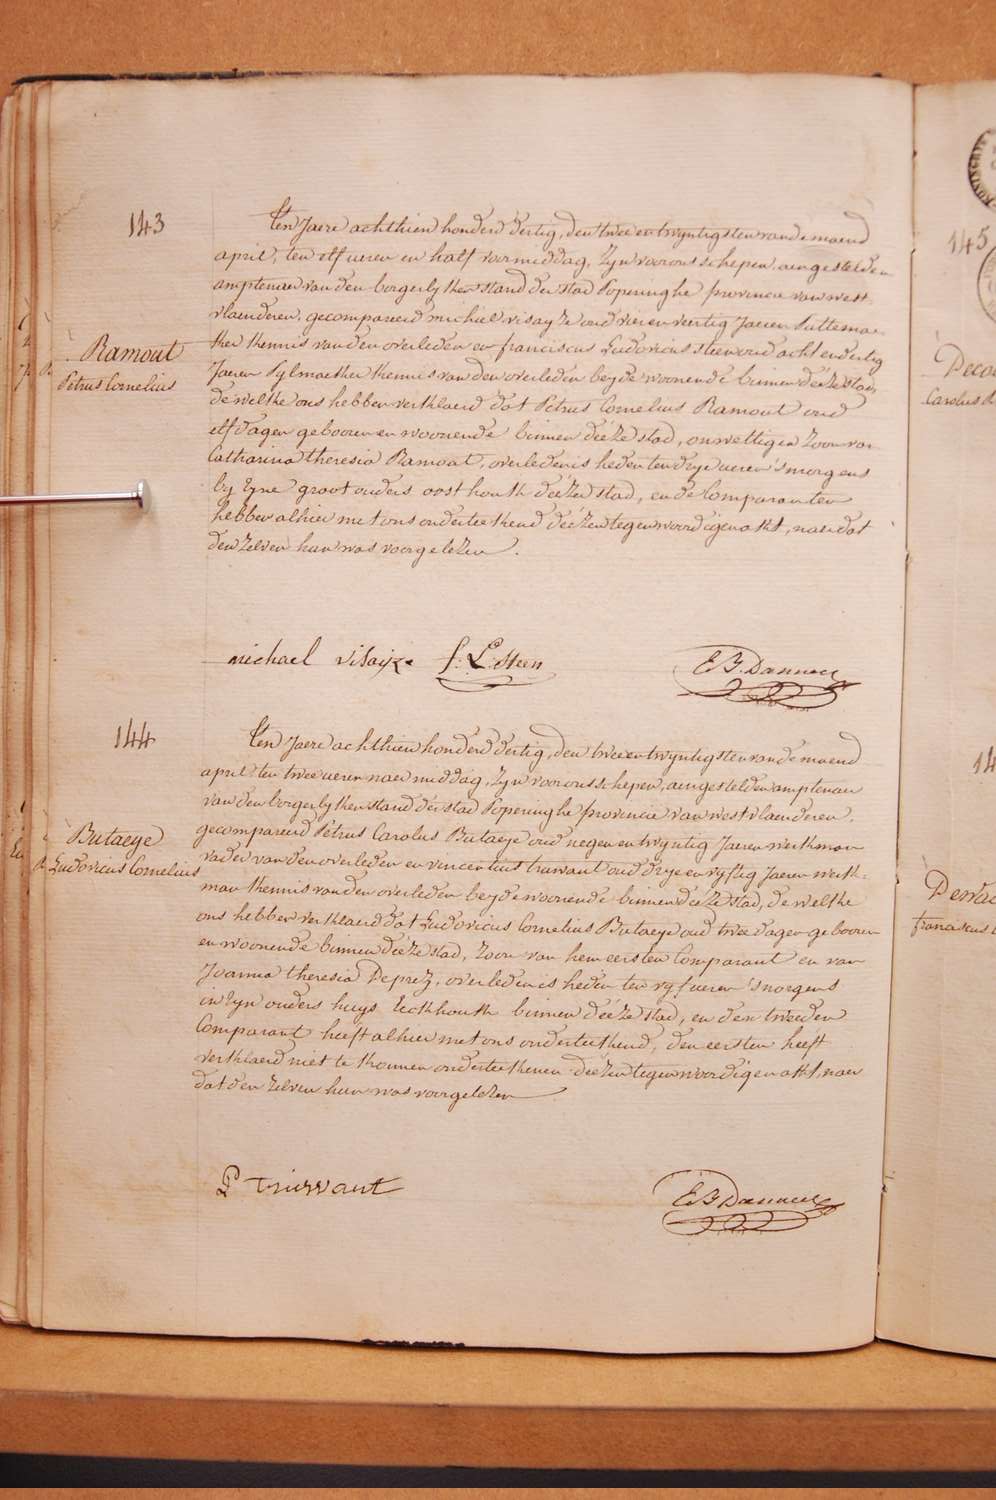 143
Ramout
Petrus Cornelius
Ten Jaere achthien honderd dertig, den twee en twyntigsten van de maend
april, ten elf ueren en half voormiddag, Zyn voor ons schepen, aengestelden
amptenaer van den borgerlyken stand der stad Poperinghe provincie van west-
vlaenderen, gecompareerd michiel visayze oud vier en veertig Jaeren
kennis van den overleden en franciscus Ludovicus steen oud acht en dertig
Jaeren kennis van den overleden beyde woonende binnen deéze stad,
de welke ons hebben verklaerd dat Petrus Cornelius Ramout oud
elf dagen gebooren en woonende binnen deéze stad, onwettigen Zoon van
Catharina theresia Ramout, overleden is heden ten drye ueren 's morgens
by Zyne groot ouders oosthouk deézer stad, en de Comparanten
hebben alhier met ons onderteekend deézen tegenwoordigen akt, naer dat
den zelven hun was voorgelezen.
michael visayze f: L: steen
144
Butaeye
Ludovicus Cornelius
Ten Jaere achthien honderd dertig, den twee en twyntigsten van de maend
april ten twee ueren naer middag, Zyn voor ons schepen, aengestelden amptenaer
van den borgerlyken stand der stad Poperinghe provincie van westvlaenderen,
gecompareerd Pétrus Carolus Butaeye oud negen en twyntig Jaeren werkman
vader van den overleden en vincentius truwant oud drye en vyftig Jaeren werk-
man kennis van den overleden beyde woonende binnen deéze stad, de welke
ons hebben verklaerd dat Ludovicus Cornelius Butaeye oud twee dagen gebooren
en woonende binnen deéze stad, Zoon van hem eersten Comparant en van
Joanna theresia Deprez, overleden is heden ten vyf ueren 's morgens
in Zyn ouders huys Eekhouk binnen deéze stad, en den tweeden
Comparant heeft alhier met ons onderteekend, den eersten heeft
verklaerd niet te konnen onderteekenen deézen tegenwoordigen akt, naer
dat den zelven hun was voorgelezen
145
Carolus
franciscus